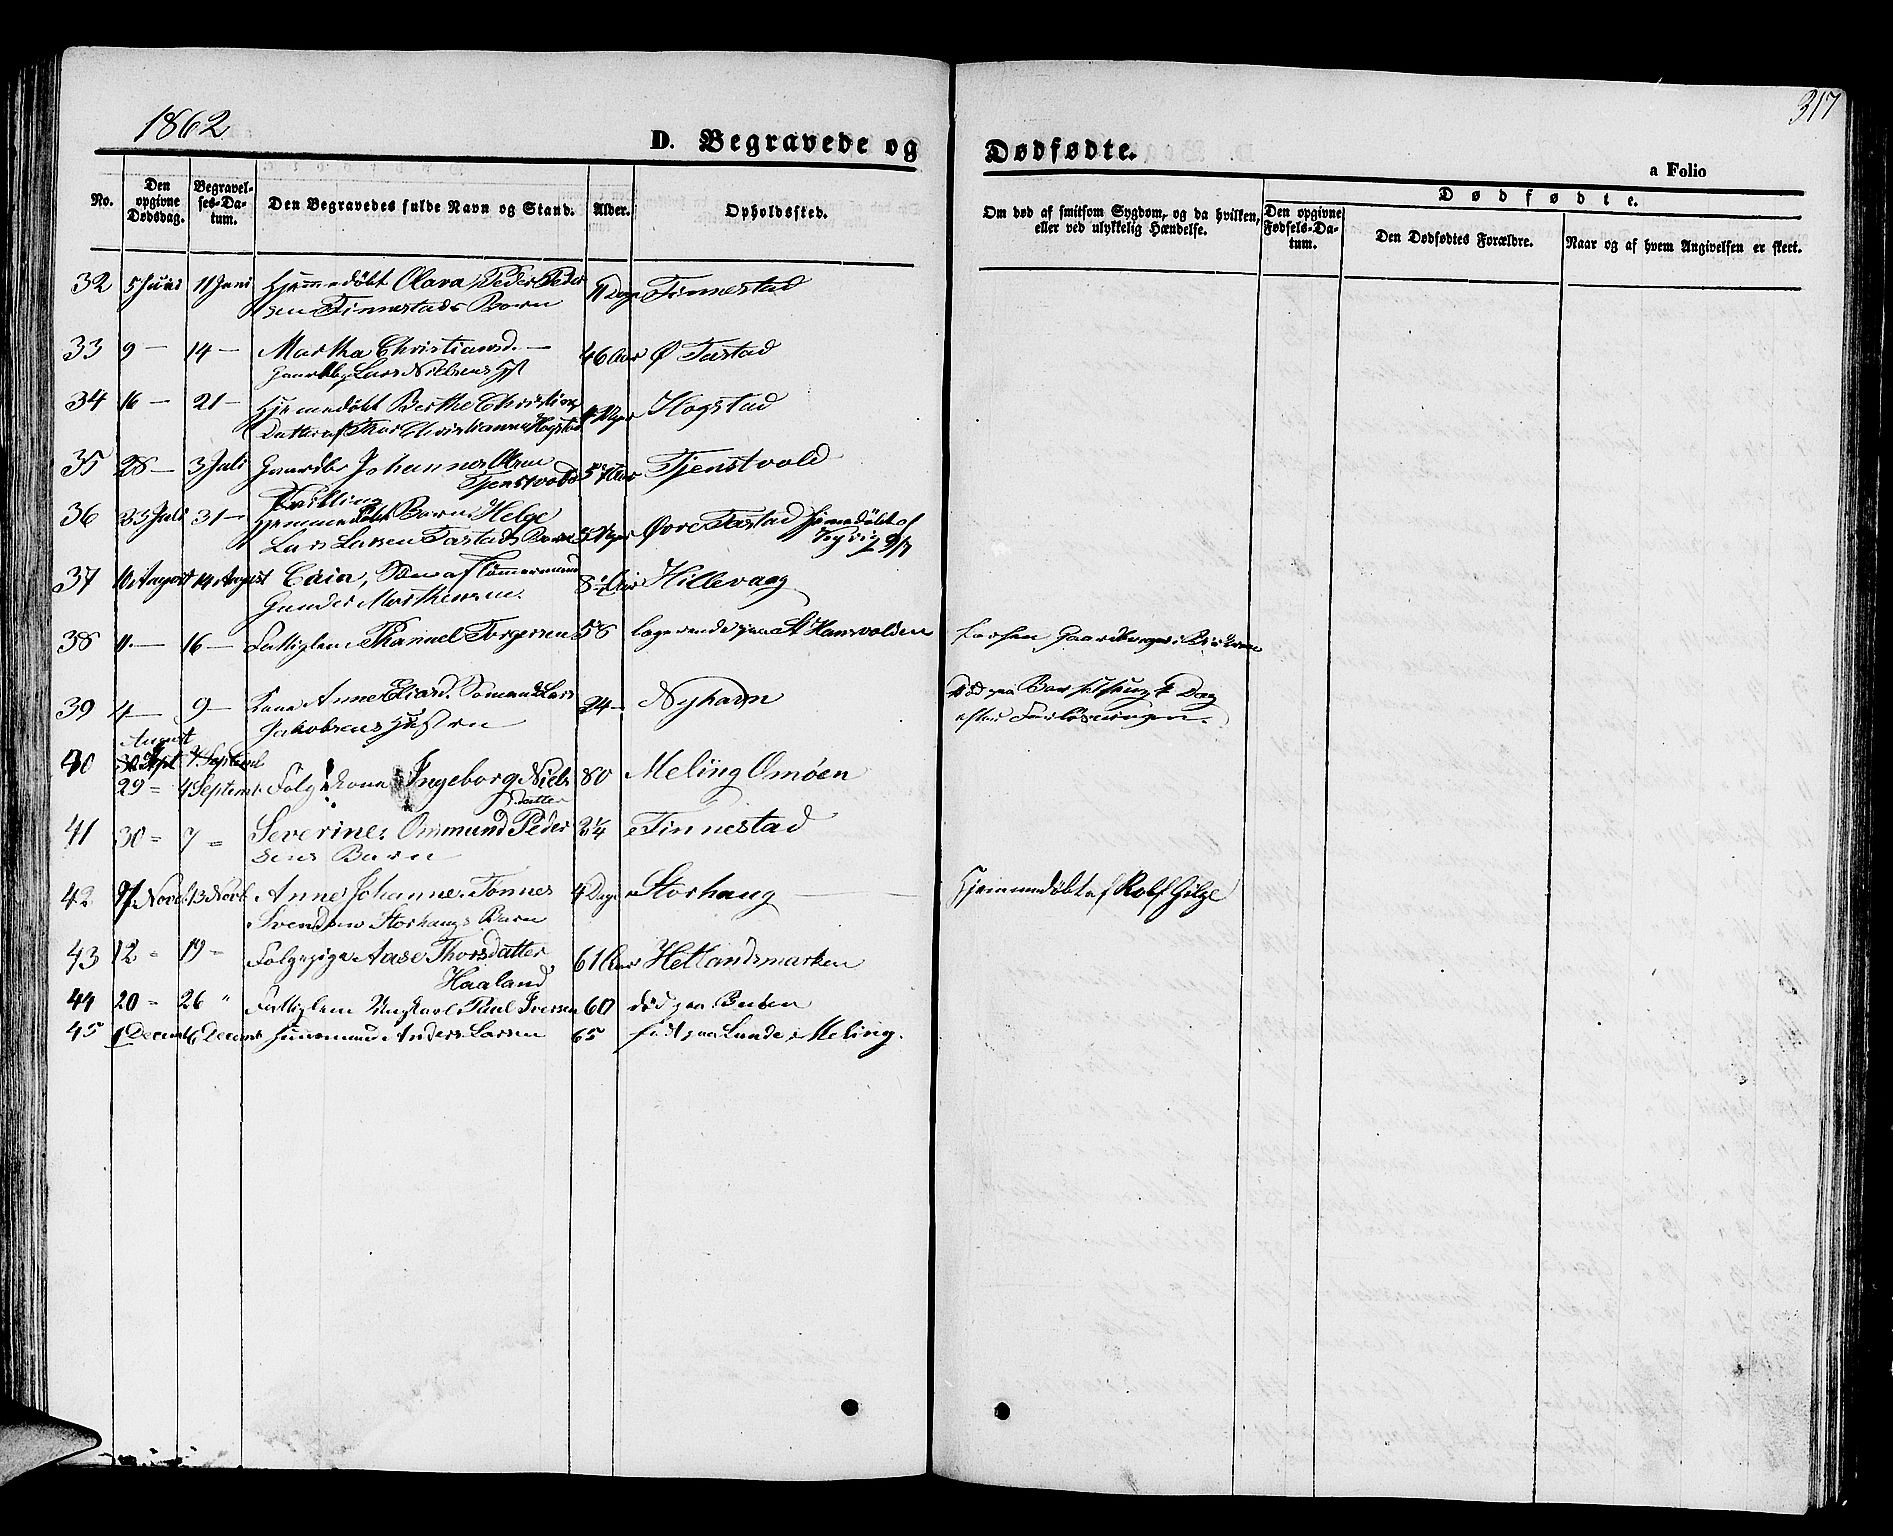 1862
317
D. Begravede og Dødfødte.
a Folio
No.
Den opgivne Dødsdag.
Begravelses-Datum.
Den Begravedes fulde Navn og Stand.
Alder.
Opholdssted.
Om død af smitsom Sygdom, og da hvilken, eller ved ulykkelig Hændelse.
Den opgivne Fødsels-Datum.
Dødfødte.
Den Dødfødtes Forældre.
Naar og af hvem Angivelsen er skeet.
32 5 Juni 11 Juni Hjemmedøbt Olava Peder Peder Dage Tinnestad
sen Tinnestads Barn
33 9 — 14 — Martha Christiansd. — 46 Aar Ø Tastad
Lars Nielsens
34 16 — 21 — Hjemmedøbt Berthe Christine Hogstad
Datter af Thor Christiansen Hogstad
35 28 — 3 Juli Gaardbr Johannes Olsen 57 Aar Tjenstvold
Tjenstvold
36 23 Juli 31 — Tvilling
Hjemmedøbt Barn Helge Øvre Tastad hjemedøbt af
Lars Larsen Tastads Barn
37 10 August 14 August Søn af Tømmermand Hillevaag
Gunder Marthensen.
38 11 — 16 — Fattiglem Thanuel Torgersen 58 logerende paa St Hansvolden
39 4 — 9 — Kone Anne Sømand Lars 24 — Nyhavn Død paa Barselseng Dag
Jakobsens Hustru efter Forløsningen.
August
40 30 Sept 4 Septemb
29 = 4 Septemb. Kone Ingeborg Niels 80 Meling Omøen
datter
41 30 = 7 = Severine, Ommund Peder 3¼ Tinnestad
sens Barn
42 9 Novb. 13 Novb. Anne Johanne, Tønnes 4 Dage Storhaug Hjemmedøbt af Rolf Gilje
Svendsen Storhaugs Barn
43 12 = 19 = Aase Thorsdatter 61 Aar Hetlandsmarken
Haaland
44 20 = 26 " Fattiglem Ungkarl Paul Iversen 60 død paa Buøen
45 1 Decemb 6 Decemb Huusmand Anders Larsen 65 født paa Lunde i Meling.